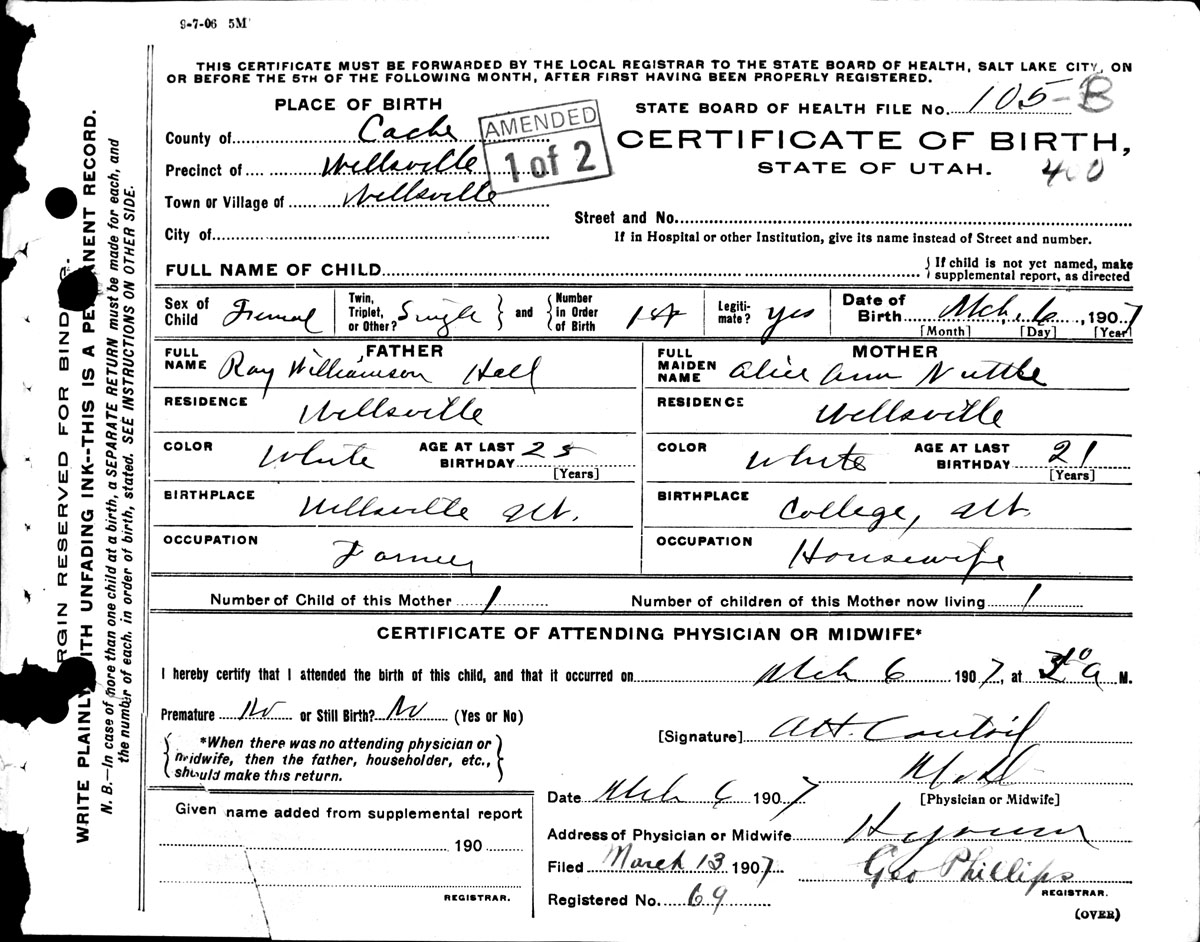 9-7-06 5M
THIS CERTIFICATE MUST BE FORWARDED BY THE LOCAL REGISTRAR TO THE STATE BOARD OF HEALTH, SALT LAKE CITY, ON
OR BEFORE THE 5TH OF THE FOLLOWING MONTH, AFTER FIRST HAVING BEEN PROPERLY REGISTERED.
PLACE OF BIRTH
STATE BOARD OF HEALTH FILE No. 105-B
County of Cache
AMENDED
1 of 2
CERTIFICATE OF BIRTH,
Precinct of Wellsville
STATE OF UTAH. 400
Town or Village of Wellsville
Street and No.
City of
If in Hospital or other Institution, give its name instead of Street and number.
FULL NAME OF CHILD
{ If child is not yet named, make
supplemental report, as directed
Sex of Child Femal
Twin, Triplet, or Other? Single } and { Number in Order of Birth 1st
Legiti-mate? yes
Date of Birth Mch. 6, 1907
[Month] [Day] [Year]
FATHER
FULL NAME Ray Williamson Hall
MOTHER
FULL MAIDEN NAME Alice Ann Nuttle
RESIDENCE Wellsville
RESIDENCE Wellsville
COLOR White AGE AT LAST BIRTHDAY 25 [Years]
COLOR White AGE AT LAST BIRTHDAY 21 [Years]
BIRTHPLACE Wellsville Ut.
BIRTHPLACE College, Ut.
OCCUPATION Farmer
OCCUPATION Housewife
Number of Child of this Mother 1 Number of children of this Mother now living 1
CERTIFICATE OF ATTENDING PHYSICIAN OR MIDWIFE*
I hereby certify that I attended the birth of this child, and that it occurred on Mch 6 1907, at a M.
Premature No or Still Birth? No (Yes or No)
[Signature]
{ *When there was no attending physician or
midwife, then the father, householder, etc.,
should make this return. }
[Physician or Midwife]
Date Mch 6 1907
Given name added from supplemental report
190
REGISTRAR.
Address of Physician or Midwife Hyrum
Filed March 13 1907 Geo Phillips
REGISTRAR.
Registered No. 69
(OVER)
RGIN RESERVED FOR BINDI
WRITE PLAINLY WITH UNFADING INK--THIS IS A PE ANENT RECORD.
N. B.—In case of more than one child at a birth, a SEPARATE RETURN must be made for each, and
the number of each, in order of birth, stated. SEE INSTRUCTIONS ON OTHER SIDE.